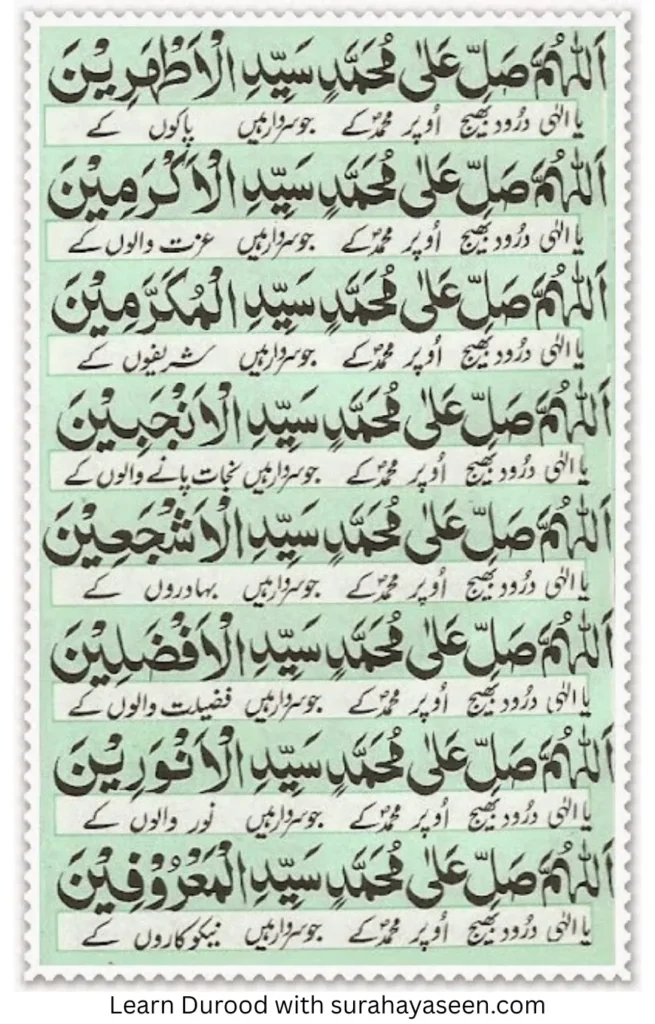 اَللّٰهُمَّ صَلِّ عَلٰى مُحَمَّدٍ سَيِّدِ الْاَطْهَرِيْنَ
یا الٰہی درُود بھیج اُوپر محمدؐ کے جو سردار ہیں پاکوں کے
اَللّٰهُمَّ صَلِّ عَلٰى مُحَمَّدٍ سَيِّدِ الْاَكْرَمِيْنَ
یا الٰہی درُود بھیج اُوپر محمدؐ کے جو سردار ہیں عزت والوں کے
اَللّٰهُمَّ صَلِّ عَلٰى مُحَمَّدٍ سَيِّدِ الْمُكَرَّمِيْنَ
یا الٰہی درُود بھیج اُوپر محمدؐ کے جو سردار ہیں شریفوں کے
اَللّٰهُمَّ صَلِّ عَلٰى مُحَمَّدٍ سَيِّدِ الْاَنْجَبِيْنَ
یا الٰہی درُود بھیج اُوپر محمدؐ کے جو سردار ہیں نجات پانے والوں کے
اَللّٰهُمَّ صَلِّ عَلٰى مُحَمَّدٍ سَيِّدِ الْاَشْجَعِيْنَ
یا الٰہی درُود بھیج اُوپر محمدؐ کے جو سردار ہیں بہادروں کے
اَللّٰهُمَّ صَلِّ عَلٰى مُحَمَّدٍ سَيِّدِ الْاَفْضَلِيْنَ
یا الٰہی درُود بھیج اُوپر محمدؐ کے جو سردار ہیں فضیلت والوں کے
اَللّٰهُمَّ صَلِّ عَلٰى مُحَمَّدٍ سَيِّدِ الْاَنْوَرِيْنَ
یا الٰہی درُود بھیج اُوپر محمدؐ کے جو سردار ہیں نور والوں کے
اَللّٰهُمَّ صَلِّ عَلٰى مُحَمَّدٍ سَيِّدِ الْمَعْرُوْفِيْنَ
یا الٰہی درُود بھیج اُوپر محمدؐ کے جو سردار ہیں نیکوکاروں کے
Learn Durood with surahayaseen.com